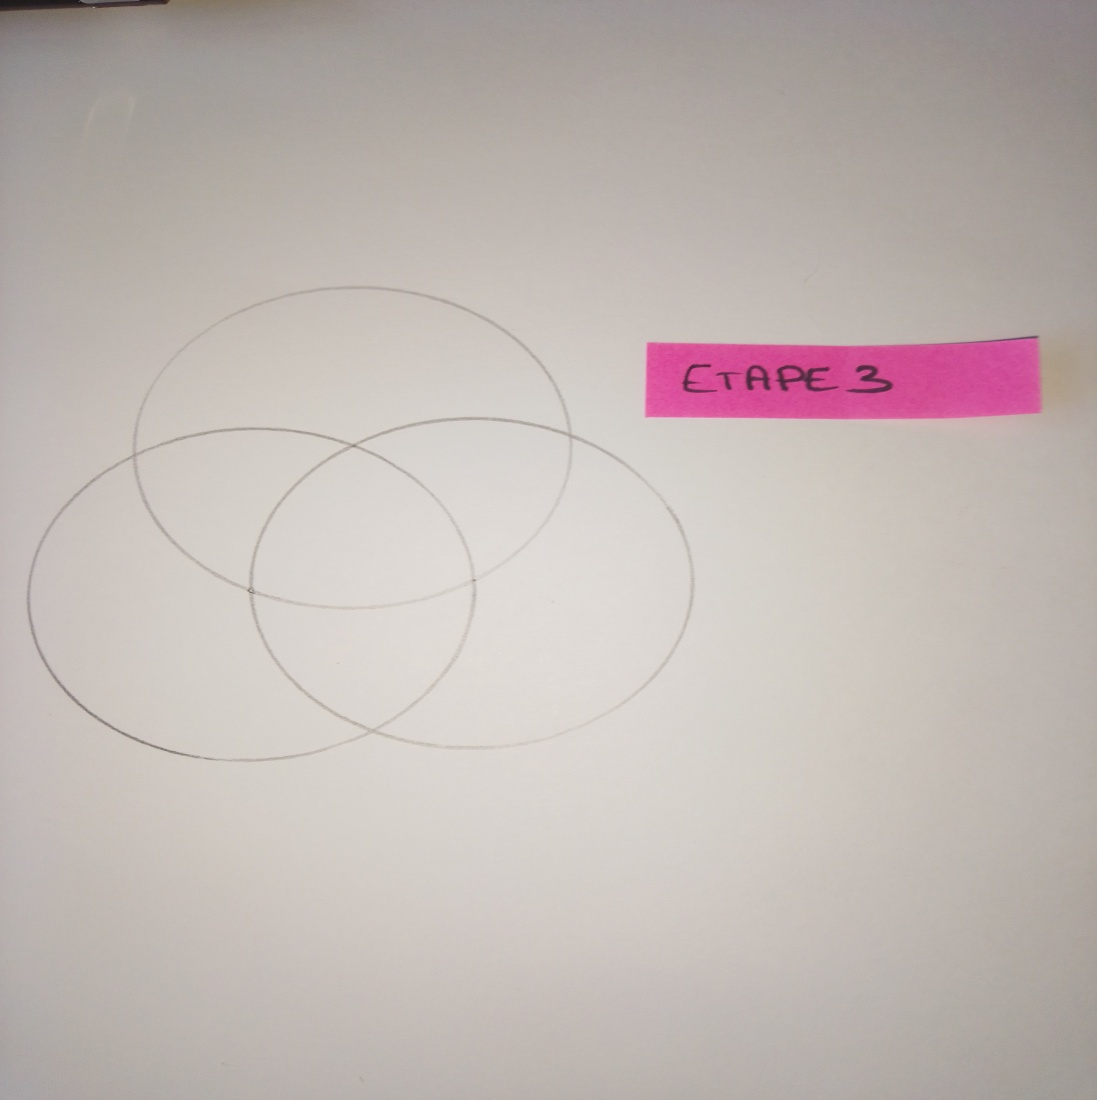 ETAPE 3